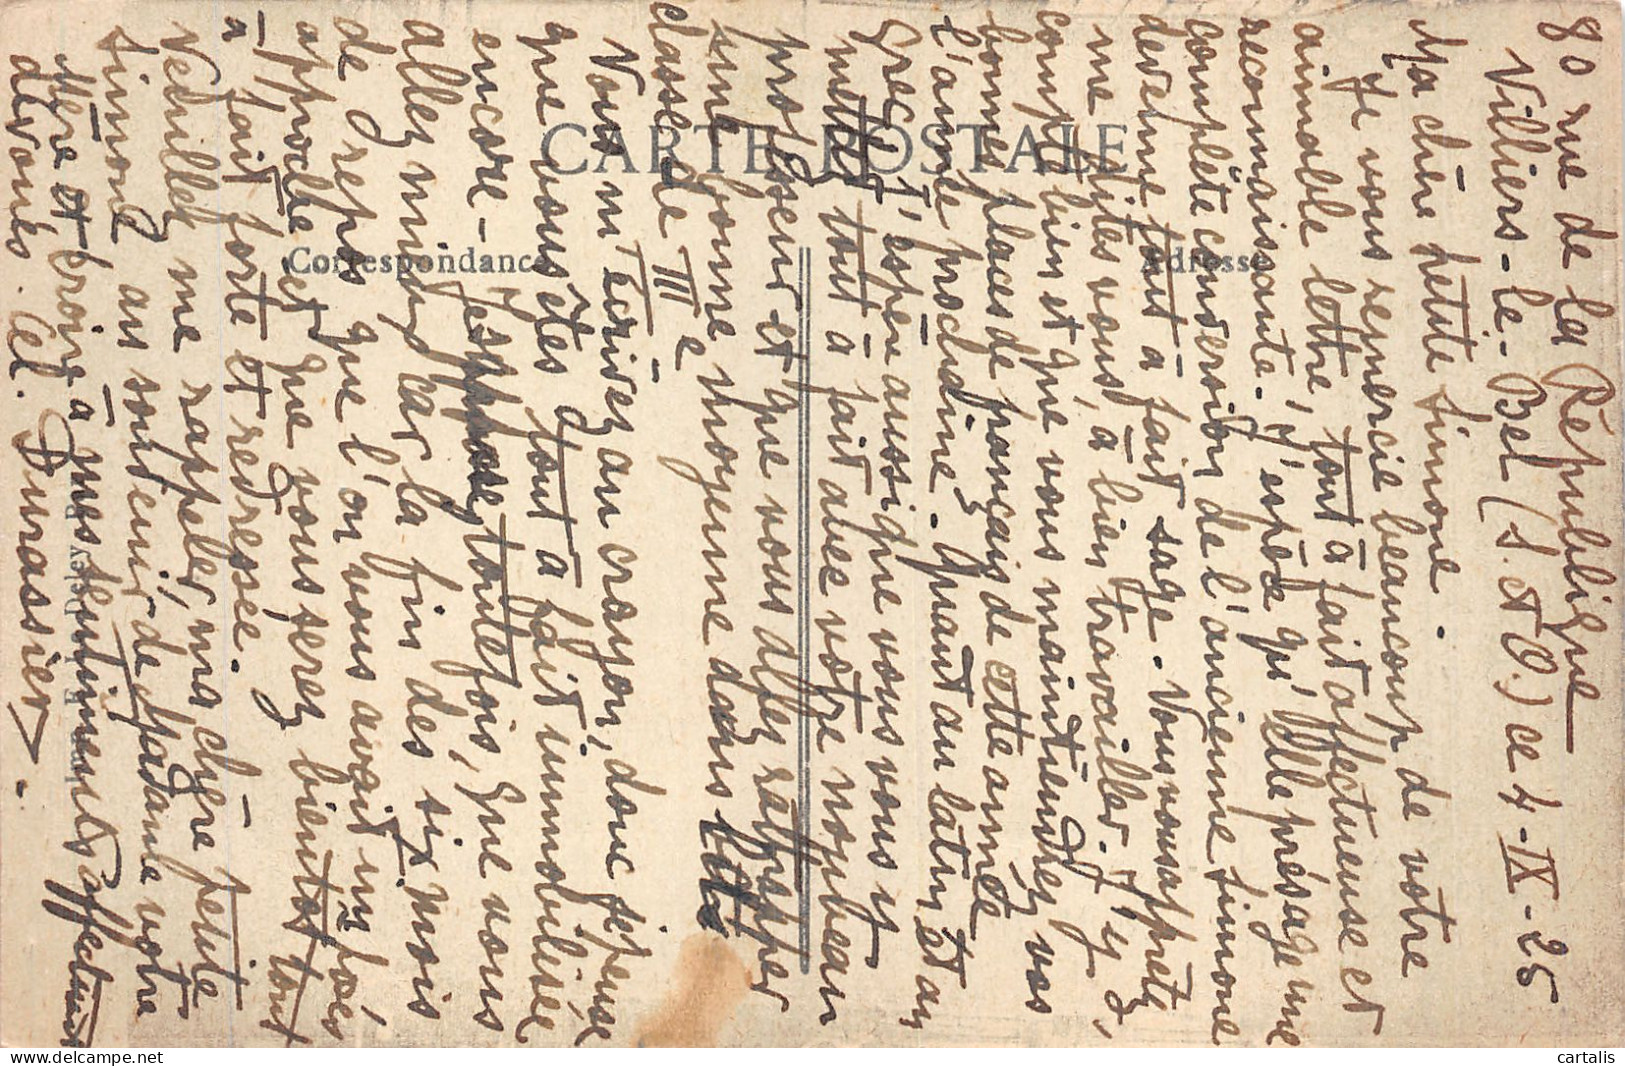 80 rue de la République
Villiers-le-Bel (S. et O.) ce 4-IX-25
Ma chère petite Simone.
Je vous remercie beaucoup de votre
aimable lettre, tout à fait affectueuse et
reconnaissante. J'espère qu'elle présage une
complète conversion de l'ancienne Simone
devenue tout à fait sage. Vous vous apprêtez,
me dites vous, à bien travailler. J'y
compte bien et que vous maintiendrez vos
bonnes places de français de cette année
l'année prochaine. Quant au latin et au
Grec j'espère aussi que vous vous y
mettrez tout à fait avec votre nouveau
professeur et que vous allez rattraper
une bonne moyenne dans
classe de IIIe
Vous m'écrivez au crayon, donc je pense
que vous êtes tout à fait immobilisée
encore - Je suppose, toutefois, que vous
allez mieux car la fin des six mois
de repos que l'on vous avait imposés
approche et que vous serez bientôt tout
à fait forte et redressée.
Veuillez me rappeler, ma chère petite
Simone au souvenir de Madame votre
Mère et croire à mes sentiments affectueux
dévoués. Cél. Durassier.
CARTE POSTALE
Correspondance
Adresse
cartalis